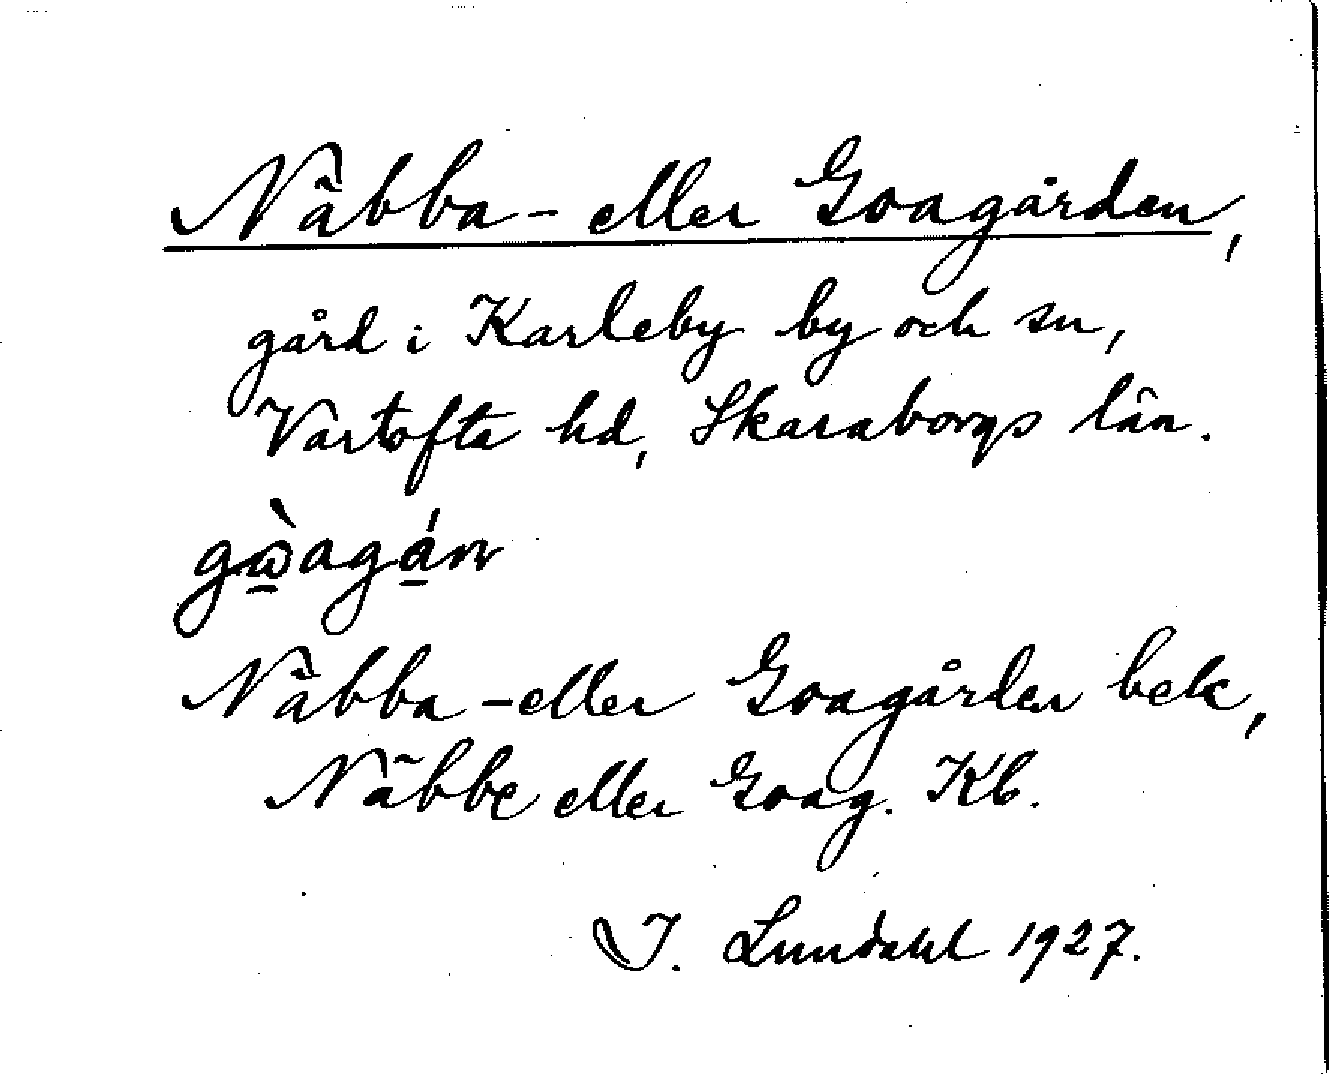 Näbba- eller Goagården,
gård i Karleby by och sn,
Vartofta hd, Skaraborgs län.
gɷ̀agán
Näbba -eller Goagården bek,
Näbbe eller Goag. Kb.
I. Lundahl 1927.